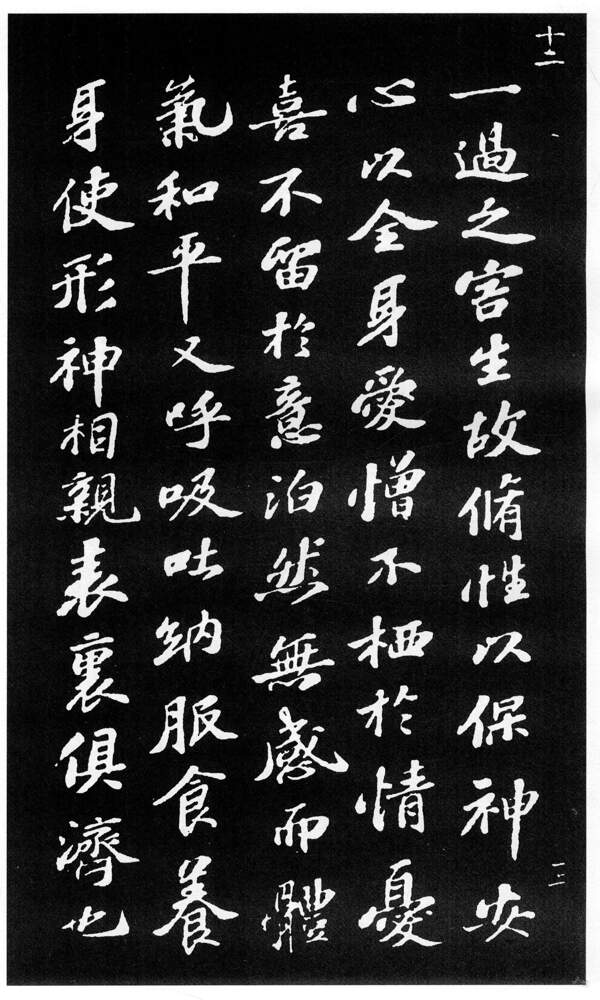 十二
一過之害生故脩性以保神安
心以全身愛憎不栖於情憂
喜不留於意泊然無感而體
氣和平又呼吸吐納服食養
身使形神相親表裏俱濟也
一二